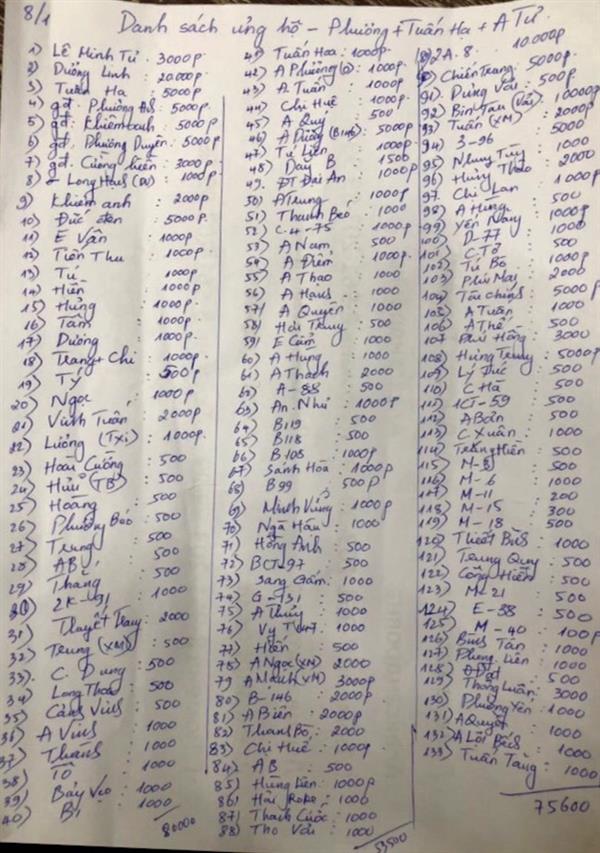 8/1
Danh sách ủng hộ - Phường + Tuấn Ha + A Tư
1) Lê Minh Tú : 3000p
2) Dương Linh : 20000p
3) Tuấn Ha : 5000p
4) gđ. Phường : 5000p
5) gđ. Khiêm Oanh : 5000p
6) gđ. Phường Duyên : 5000p
7) gđ. Cường hiền : 3000p
8) Long Haus : 1000p
9) Khiêm anh : 2000p
10) Đức đen : 5000p
11) E Vân : 1000p
12) Tiến Thu : 1000p
13) Tú : 1000p
14) Hiền : 1000p
15) Hưng : 1000p
16) Tâm : 1000p
17) Dương : 1000p
18) Trang + Chi : 1000p
19) Tý : 500p
20) Ngọc : 1000p
21) Vinh Tuấn : 2000p
22) Lương (Txi) : 1000p
23) Hoài Cường : 500
24) (TB) : 500
25) Hoàng : 500
26) Phường Béo : 500
27) Trung : 500
28) AB : 500
29) Thắng : 500
30) 2K-91 : 1000
31) Thuyết Trang : 2000
32) Trung (XM) : 500
33) C. Dung : 500
34) Long Thoa : 500
35) Cảnh Vinh : 500
36) A Vinh : 1000
37) Thành : 1000
38) Tơ : 1000
39) Bảy Vẹo : 1000
40) Bi : 1000
80000
41) Tuấn Hoa : 1000p
42) A Phường : 1000p
43) A. Tuấn : 1000p
44) Chị Huệ : 1000p
45) A Quý : 500
46) A Dũng : 5000p
47) Tư Liên : 1000p
48) Dây B : 1500
49) ĐT Đài An : 1000p
50) A Trung : 1000p
51) Thanh Béo : 1000
52) C.4-75 : 1000p
53) A Nam : 500
54) A Điềm : 1000p
55) A Thao : 1000
56) A Hạnh : 1000
57) A Quyền : 1000
58) Hải Trung : 500
59) E Cẩm : 1000
60) A Hưng : 1000
61) A Thạch : 2000
62) A-88 : 500
63) An Như : 1000p
64) B119 : 500
65) B118 : 500
66) B 108 : 1000p
67) Sánh Hòa : 1000p
68) B99 : 500p
69) Minh Vững : 1000p
70) Ngà Hầu : 1000
71) Hồng Anh : 500
72) BCT-97 : 500
73) Sang Gấm : 1000
74) G-131 : 500
75) A Thúy : 1000
76) Vy T47 : 1000
77) Hiến : 500
78) A Ngọc (XM) 2000
79) A Mạnh (XM) 3000p
80) B-146 : 2000p
81) A Biên : 2000p
82) Thanh Bộ : 2000
83) Chị Huê : 1000p
84) AB : 500
85) Hưng Liên : 1000p
86) Hải Roke : 1000
87) Thạch Cuốc : 1000
88) Thọ Vải : 1000
53500
89) 2A.8 : 10.000p
90) Chiến Trang : 5000p
91) Dũng Vải : 500p
92) Bin Tàu (Vải) : 10000p
93) Tuấn (XM) : 2000p
94) 3-96 : 5000
95) Nhung Tùy : 1000
96) Hùng Thảo : 2000
97) Chị Lan : 1000
98) A Hùng : 500
99) Yến Nàng : 1000
100) D-77 : 1000
101) C Tở : 500
102) Tú Bô : 1000p
103) Phú May : 2000
104) Tài chính : 5000p
105) A Tuân : 1000
106) A Thế : 500
107) Hồng : 3000
108) Hưng Trung : 5000p
109) Lý Đức : 500
110) C Hà : 500
111) 1CT-59 : 500
112) A Bản : 500
113) C Xuân : 1000
114) Trắng Hiền : 500
115) M-8 : 500
116) M-6 : 1000
117) M-11 : 200
118) M-15 : 300
119) M-18 : 500
120) Thiết Bích : 1000
121) Trung Quy : 500
122) Công Hiền : 500
123) M-21 : 500
124) E-38 : 500
125) M-40 : 100p
126) Bích Tân : 1000
127) Phong Liên : 1000
128) A Đạt : 500
129) Thống Luân : 3000
130) Phường Yên : 1000
131) A Quyết : 1000
132) A Lôi Bích : 1000
133) Tuấn Tăng : 1000
75600